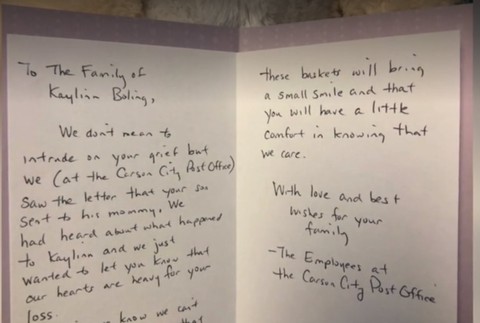 To The Family of
Kaylinn Boling,
We don't mean to
intrude on your grief but
we (at the Carson City Post Office)
saw the letter that your son
sent to his mommy. We
had heard about what happened
to Kaylinn and we just
wanted to let you know that
our hearts are heavy for your
loss.
know we can't
that
these baskets will bring
a small smile and that
you will have a little
comfort in knowing that
we care.
With love and best
wishes for your
family
-The Employees at
the Carson City Post Office